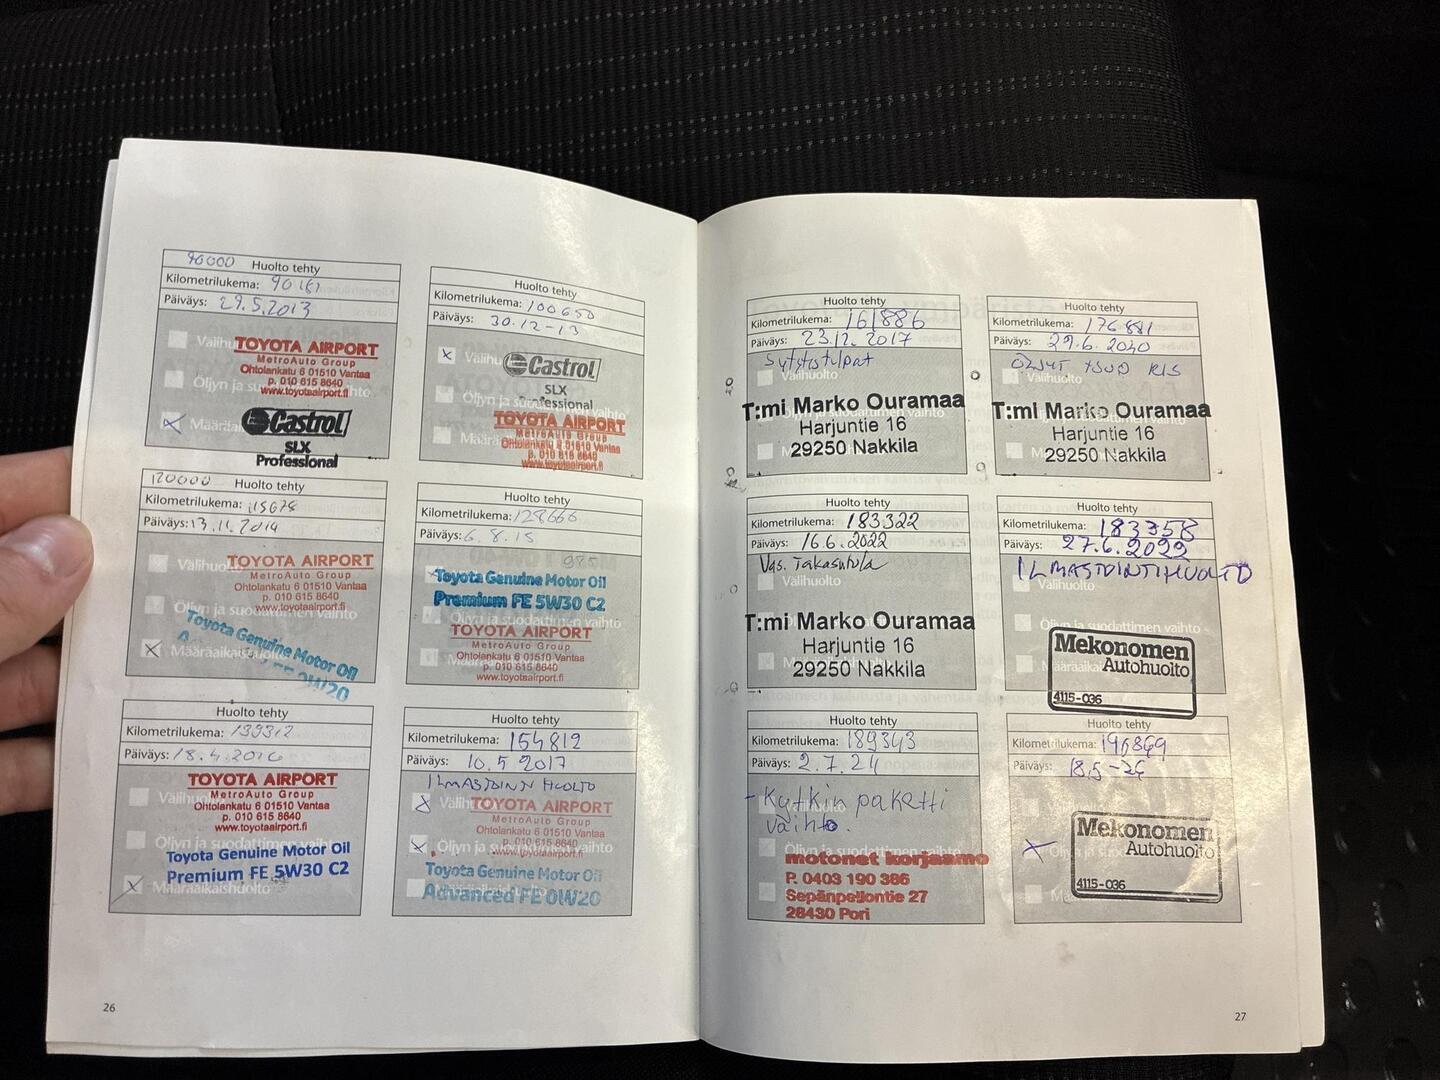 90000 Huolto tehty
Kilometrilukema: 90181
Päiväys: 29.5.2013
Välihu
TOYOTA AIRPORT
MetroAuto Group
Ohtolankatu 6 01510 Vantaa
p. 010 615 8640
www.toyotaairport.fi
Öljyn ja su
Määräa
Castrol
SLX
Professional
Huolto tehty
Kilometrilukema: 100650
Päiväys: 30.12-13
Välihu
Castrol
SLX
Professional
Öljyn ja su
TOYOTA AIRPORT
MetroAuto Group
Ohtolankatu 6 01510 Vantaa
p. 010 615 8640
www.toyotaairport.fi
120000 Huolto tehty
Kilometrilukema: 115678
Päiväys: 13.11.2014
Välihuo
TOYOTA AIRPORT
MetroAuto Group
Ohtolankatu 6 01510 Vantaa
p. 010 615 8640
www.toyotaairport.fi
Öljyn ja suodattimen vaihto
Toyota Genuine Motor Oil
FE 0W20
Määräaikaishuolto
Huolto tehty
Kilometrilukema: 128666
Päiväys: 6.8.15
Toyota Genuine Motor Oil
Premium FE 5W30 C2
TOYOTA AIRPORT
MetroAuto Group
Ohtolankatu 6 01510 Vantaa
p. 010 615 8640
www.toyotaairport.fi
Huolto tehty
Kilometrilukema: 139312
Päiväys: 18.4.2016
TOYOTA AIRPORT
Välihuolto
MetroAuto Group
Ohtolankatu 6 01510 Vantaa
p. 010 615 8640
www.toyotaairport.fi
Toyota Genuine Motor Oil
Premium FE 5W30 C2
Määräaikaishuolto
Huolto tehty
Kilometrilukema: 154812
Päiväys: 10.5 2017
ILMASTOINTI HUOLTO
TOYOTA AIRPORT
MetroAuto Group
Ohtolankatu 6 01510 Vantaa
p. 010 615 8640
www.toyotaairport.fi
Öljyn ja suodattimen vaihto
Toyota Genuine Motor Oil
Advanced FE 0W20
26
Huolto tehty
Kilometrilukema: 161886
Päiväys: 23.12.2017
Sytytystulpat
Välihuolto
T:mi Marko Ouramaa
Harjuntie 16
29250 Nakkila
Huolto tehty
Kilometrilukema: 176881
Päiväys: 29.6.2020
Välihuolto
T:mi Marko Ouramaa
Harjuntie 16
29250 Nakkila
Huolto tehty
Kilometrilukema: 183322
Päiväys: 16.6.2022
Vas. Takasatula
Välihuolto
T:mi Marko Ouramaa
Harjuntie 16
29250 Nakkila
Huolto tehty
Kilometrilukema: 183358
Päiväys: 27.6.2022
ILMASTOINTIHUOLTO
Välihuolto
Öljyn ja suodattimen vaihto
Mekonomen
Autohuolto
4115-036
Huolto tehty
Kilometrilukema: 189343
Päiväys: 2.7.24
- Kytkin paketti
vaihto.
motonet korjaamo
P. 0403 190 386
Sepänpellontie 27
28430 Pori
Huolto tehty
Kilometrilukema: 196869
Päiväys: 18.5-26
Mekonomen
Autohuolto
4115-036
27